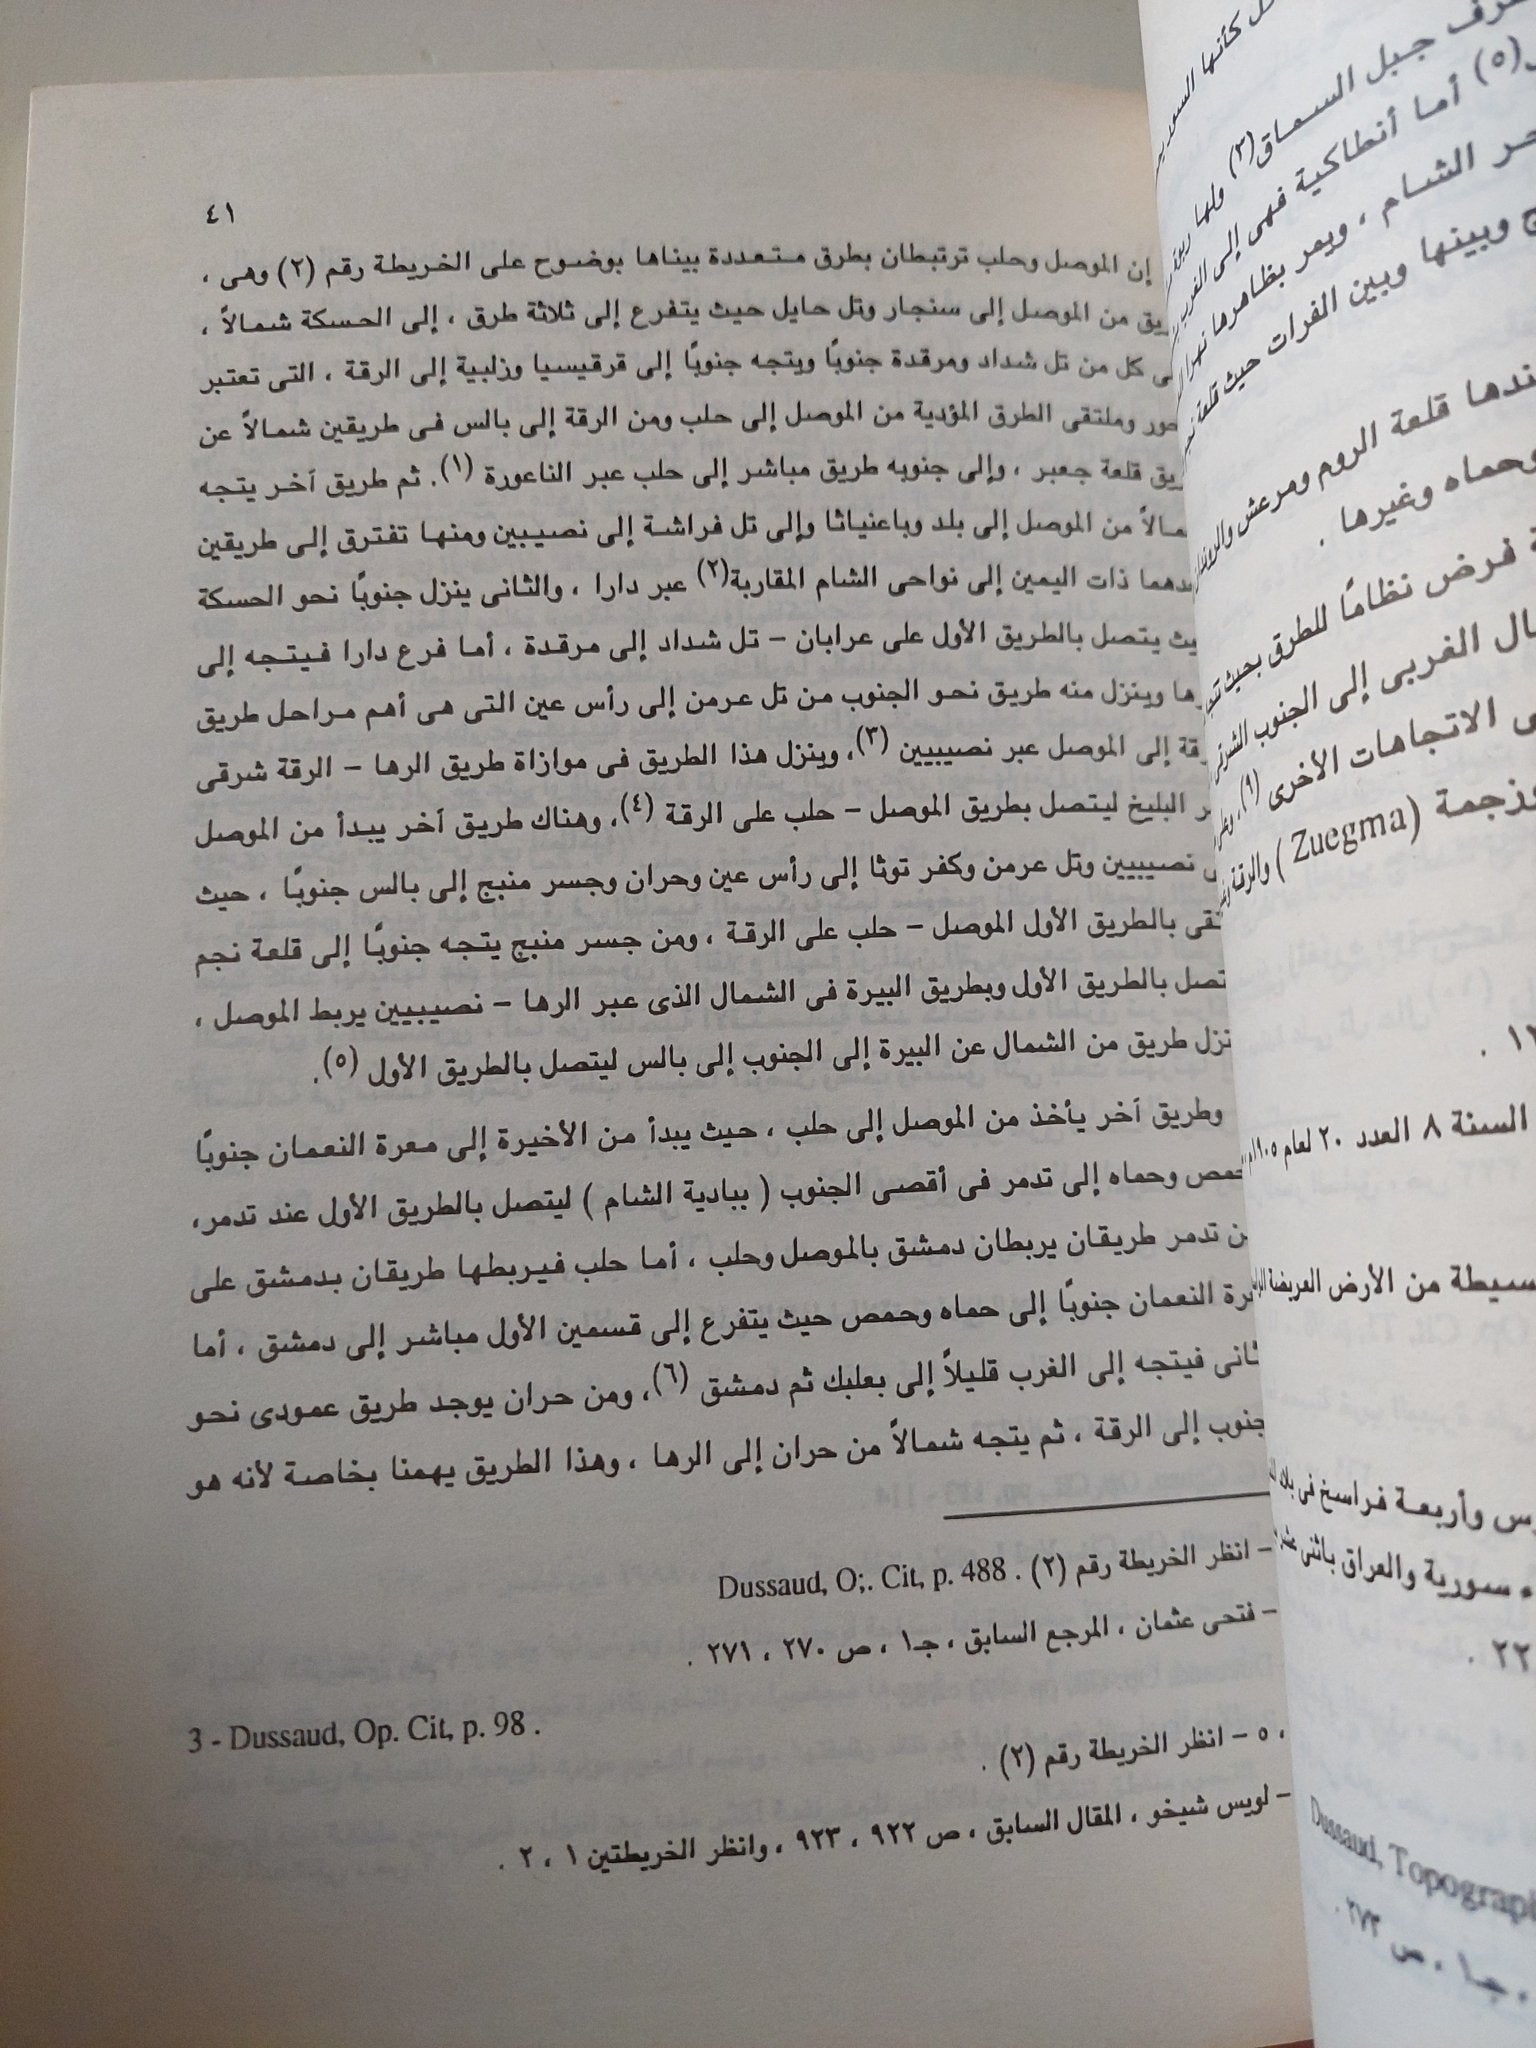 ٤١
إن الموصل وحلب ترتبطان بطرق متعددة بيناها بوضوح على الخريطة رقم (٢) وهى ،
من الموصل إلى سنجار وتل حايل حيث يتفرع إلى ثلاثة طرق ، إلى الحسكة شمالاً ،
كل من تل شداد ومرقدة جنوبًا ويتجه جنوبًا إلى قرقيسيا وزلبية إلى الرقة ، التى تعتبر
وملتقى الطرق المؤدية من الموصل إلى حلب ومن الرقة إلى بالس فى طريقين شمالاً عن
قلعة جعبر ، وإلى جنوبه طريق مباشر إلى حلب عبر الناعورة (١). ثم طريق آخر يتجه
من الموصل إلى بلد وباعنياثا وإلى تل فراشة إلى نصيبين ومنها تفترق إلى طريقين
ذات اليمين إلى نواحى الشام المقاربة(٢) عبر دارا ، والثانى ينزل جنوبًا نحو الحسكة
يتصل بالطريق الأول على عرابان – تل شداد إلى مرقدة ، أما فرع دارا فيتجه إلى
وينزل منه طريق نحو الجنوب من تل عرمن إلى رأس عين التى هى أهم مراحل طريق
إلى الموصل عبر نصيبيين (٣)، وينزل هذا الطريق فى موازاة طريق الرها – الرقة شرقى
البليخ ليتصل بطريق الموصل – حلب على الرقة (٤)، وهناك طريق آخر يبدأ من الموصل
نصيبيين وتل عرمن وكفر توثا إلى رأس عين وحران وجسر منبج إلى بالس جنوبًا ، حيث
بالطريق الأول الموصل – حلب على الرقة ، ومن جسر منبج يتجه جنوبًا إلى قلعة نجم
بالطريق الأول وبطريق البيرة فى الشمال الذى عبر الرها – نصيبيين يربط الموصل ،
طريق من الشمال عن البيرة إلى الجنوب إلى بالس ليتصل بالطريق الأول (٥).
وطريق آخر يأخذ من الموصل إلى حلب ، حيث يبدأ من الأخيرة إلى معرة النعمان جنوبًا
وحماه إلى تدمر فى أقصى الجنوب ( ببادية الشام ) ليتصل بالطريق الأول عند تدمر،
تدمر طريقان يربطان دمشق بالموصل وحلب ، أما حلب فيربطها طريقان بدمشق على
النعمان جنوبًا إلى حماه وحمص حيث يتفرع إلى قسمين الأول مباشر إلى دمشق ، أما
فيتجه إلى الغرب قليلاً إلى بعلبك ثم دمشق (٦)، ومن حران يوجد طريق عمودى نحو
إلى الرقة ، ثم يتجه شمالاً من حران إلى الرها ، وهذا الطريق يهمنا بخاصة لأنه هو
– انظر الخريطة رقم (٢) . Dussaud, O;. Cit, p. 488
– فتحى عثمان ، المرجع السابق ، جـ١ ، ص ٢٧٠ ، ٢٧١ .
3 - Dussaud, Op. Cit, p. 98 .
، ٥ – انظر الخريطة رقم (٢) .
– لويس شيخو ، المقال السابق ، ص ٩٢٢ ، ٩٢٣ ، وانظر الخريطتين ١ ، ٢ .
كأنها
جبل السماق(٣) ولها
(٥) أما أنطاكية فهى إلى
الشام ، ويمر بظاهرها
وبينها وبين الفرات حيث قلعة
قلعة الروم ومرعش
وحماه وغيرها .
فرض نظامًا للطرق بحيث
الغربى إلى الجنوب
الاتجاهات الأخرى (٩)،
(Zuegma) والرقة
السنة ٨ العدد ٢٠ لعام
من الأرض العريضة
وأربعة فراسخ فى بلاد
سورية والعراق باثنى
٢٢ .
Dussaud,
جـ١ ، ص ٢٧٣ .